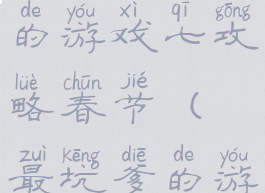 de yóu xì qī gōng
的游戏七攻
lüè chūn jié
略春节（
zuì kēng diē de yóu
最坑爹的游